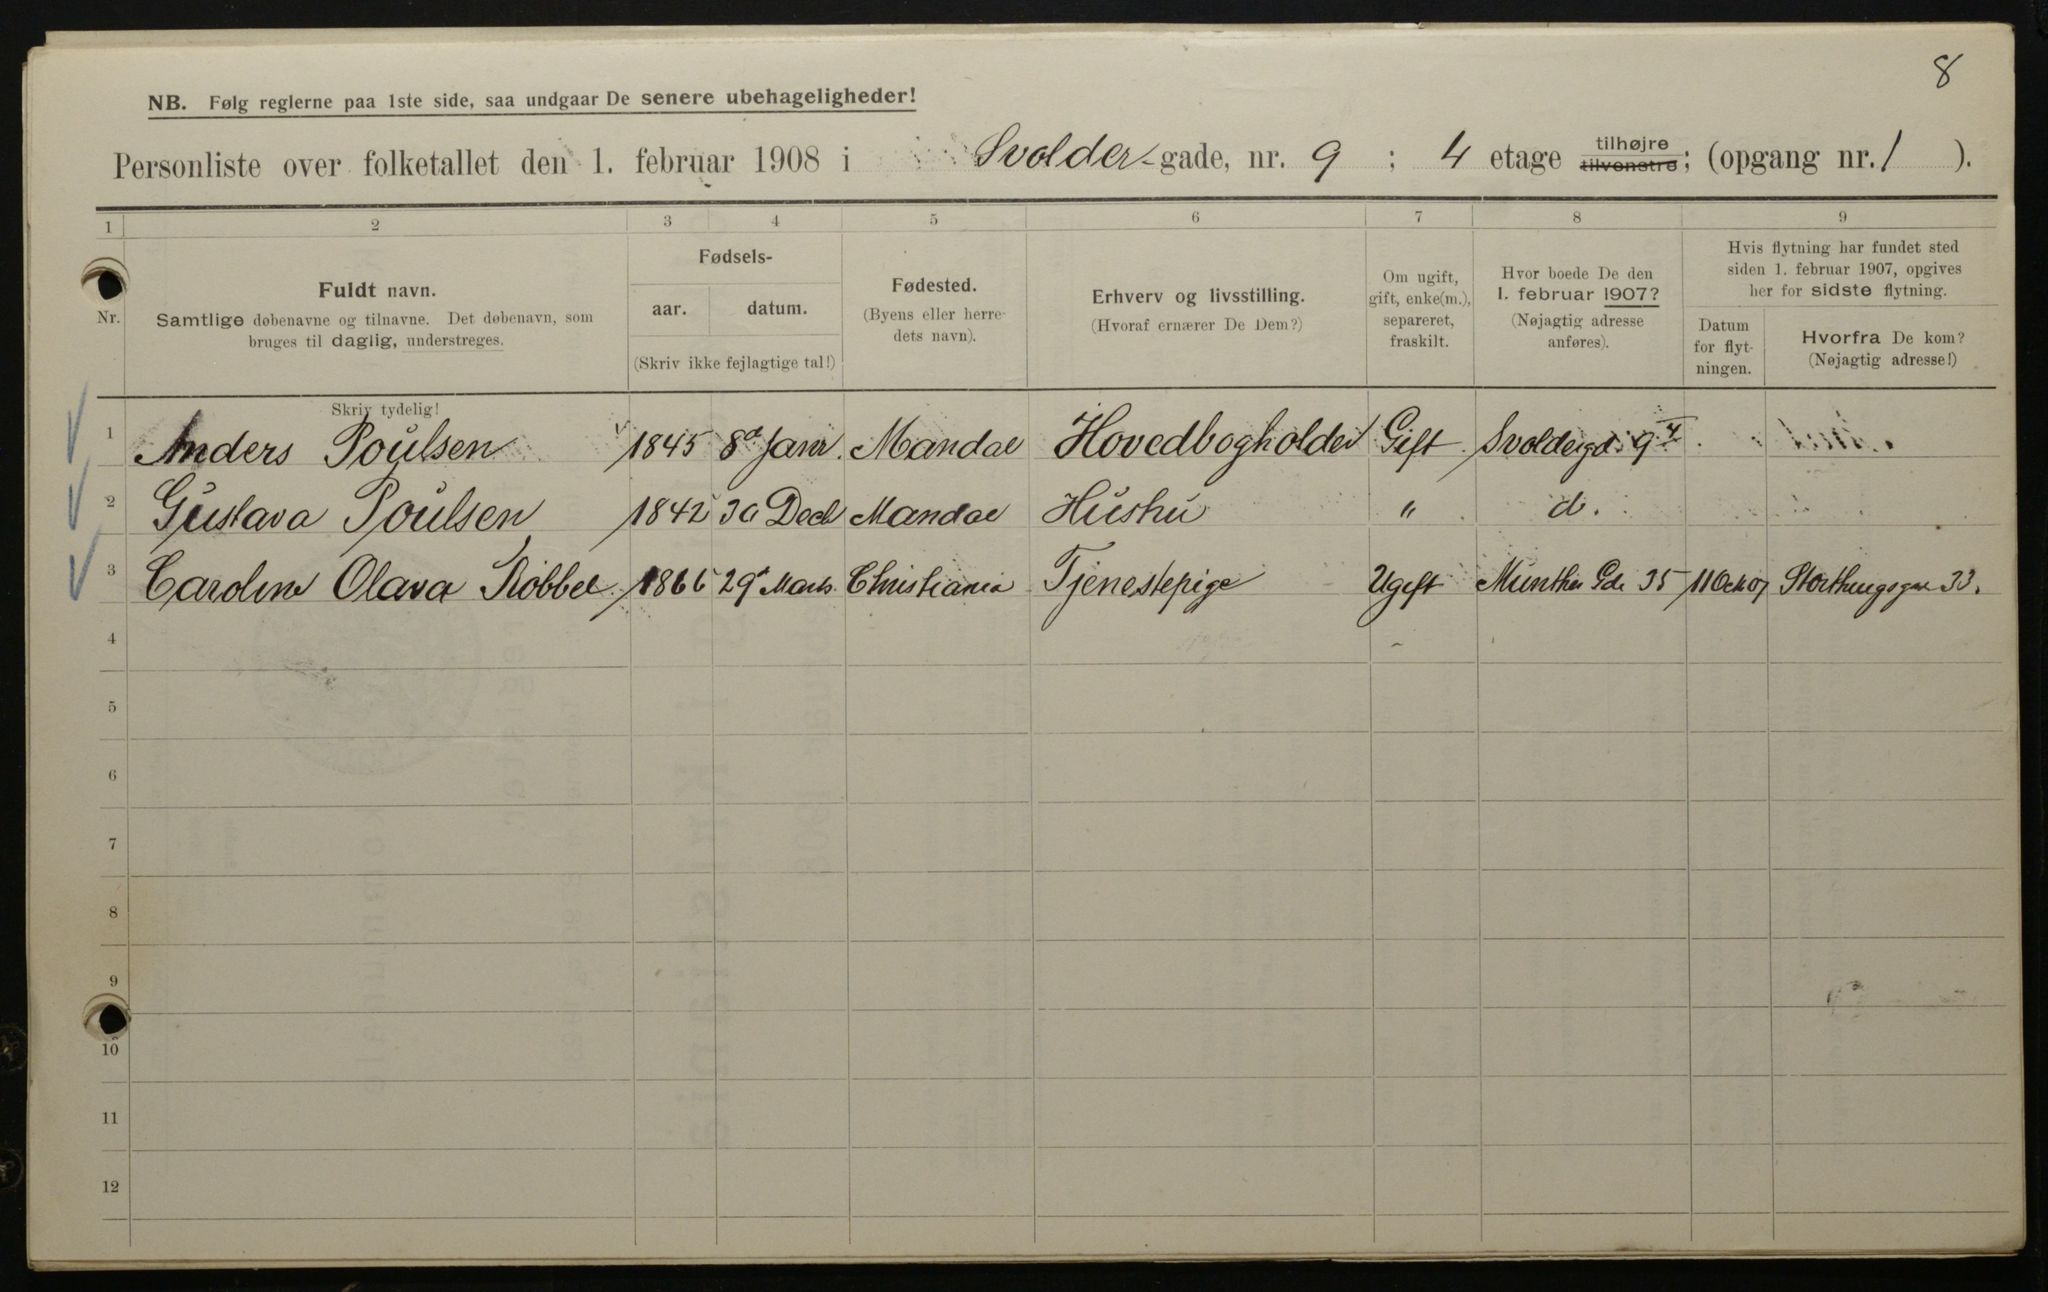 8
NB. Følg reglerne paa 1ste side, saa undgaar De senere ubehageligheder!
Personliste over folketallet den 1. februar 1908 i Svolder-gade, nr. 9 ; 4 etage tilhøjre tilvenstre; (opgang nr. 1 ).
1 2 3 4 5 6 7 8 9
Nr.
Fuldt navn.
Samtlige døbenavne og tilnavne. Det døbenavn, som
bruges til daglig, understreges.
Skriv tydelig!
Fødsels-
aar. datum.
(Skriv ikke fejlagtige tal!)
Fødested.
(Byens eller herre-
dets navn).
Erhverv og livsstilling.
(Hvoraf ernærer De Dem?)
Om ugift,
gift, enke(m.),
separeret,
fraskilt.
Hvor boede De den
1. februar 1907?
(Nøjagtig adresse
anføres).
Hvis flytning har fundet sted
siden 1. februar 1907, opgives
her for sidste flytning.
Datum
for flyt-
ningen.
Hvorfra De kom?
(Nøjagtig adresse!)
1 Anders Poulsen 1845 8d Janr. Mandal Hovedbogholder Gift Svoldergd. 9 4
2 Gustava Poulsen 1842 30 Decb Mandal Hustru " d.
3 Caroline Olava Robbel 1866 29 Marts Christiania Tjenestepige Ugift Munthes Gde 35 11 Okt 07 Storthingsgd 33.
4
5
6
7
8
9
10
11
12